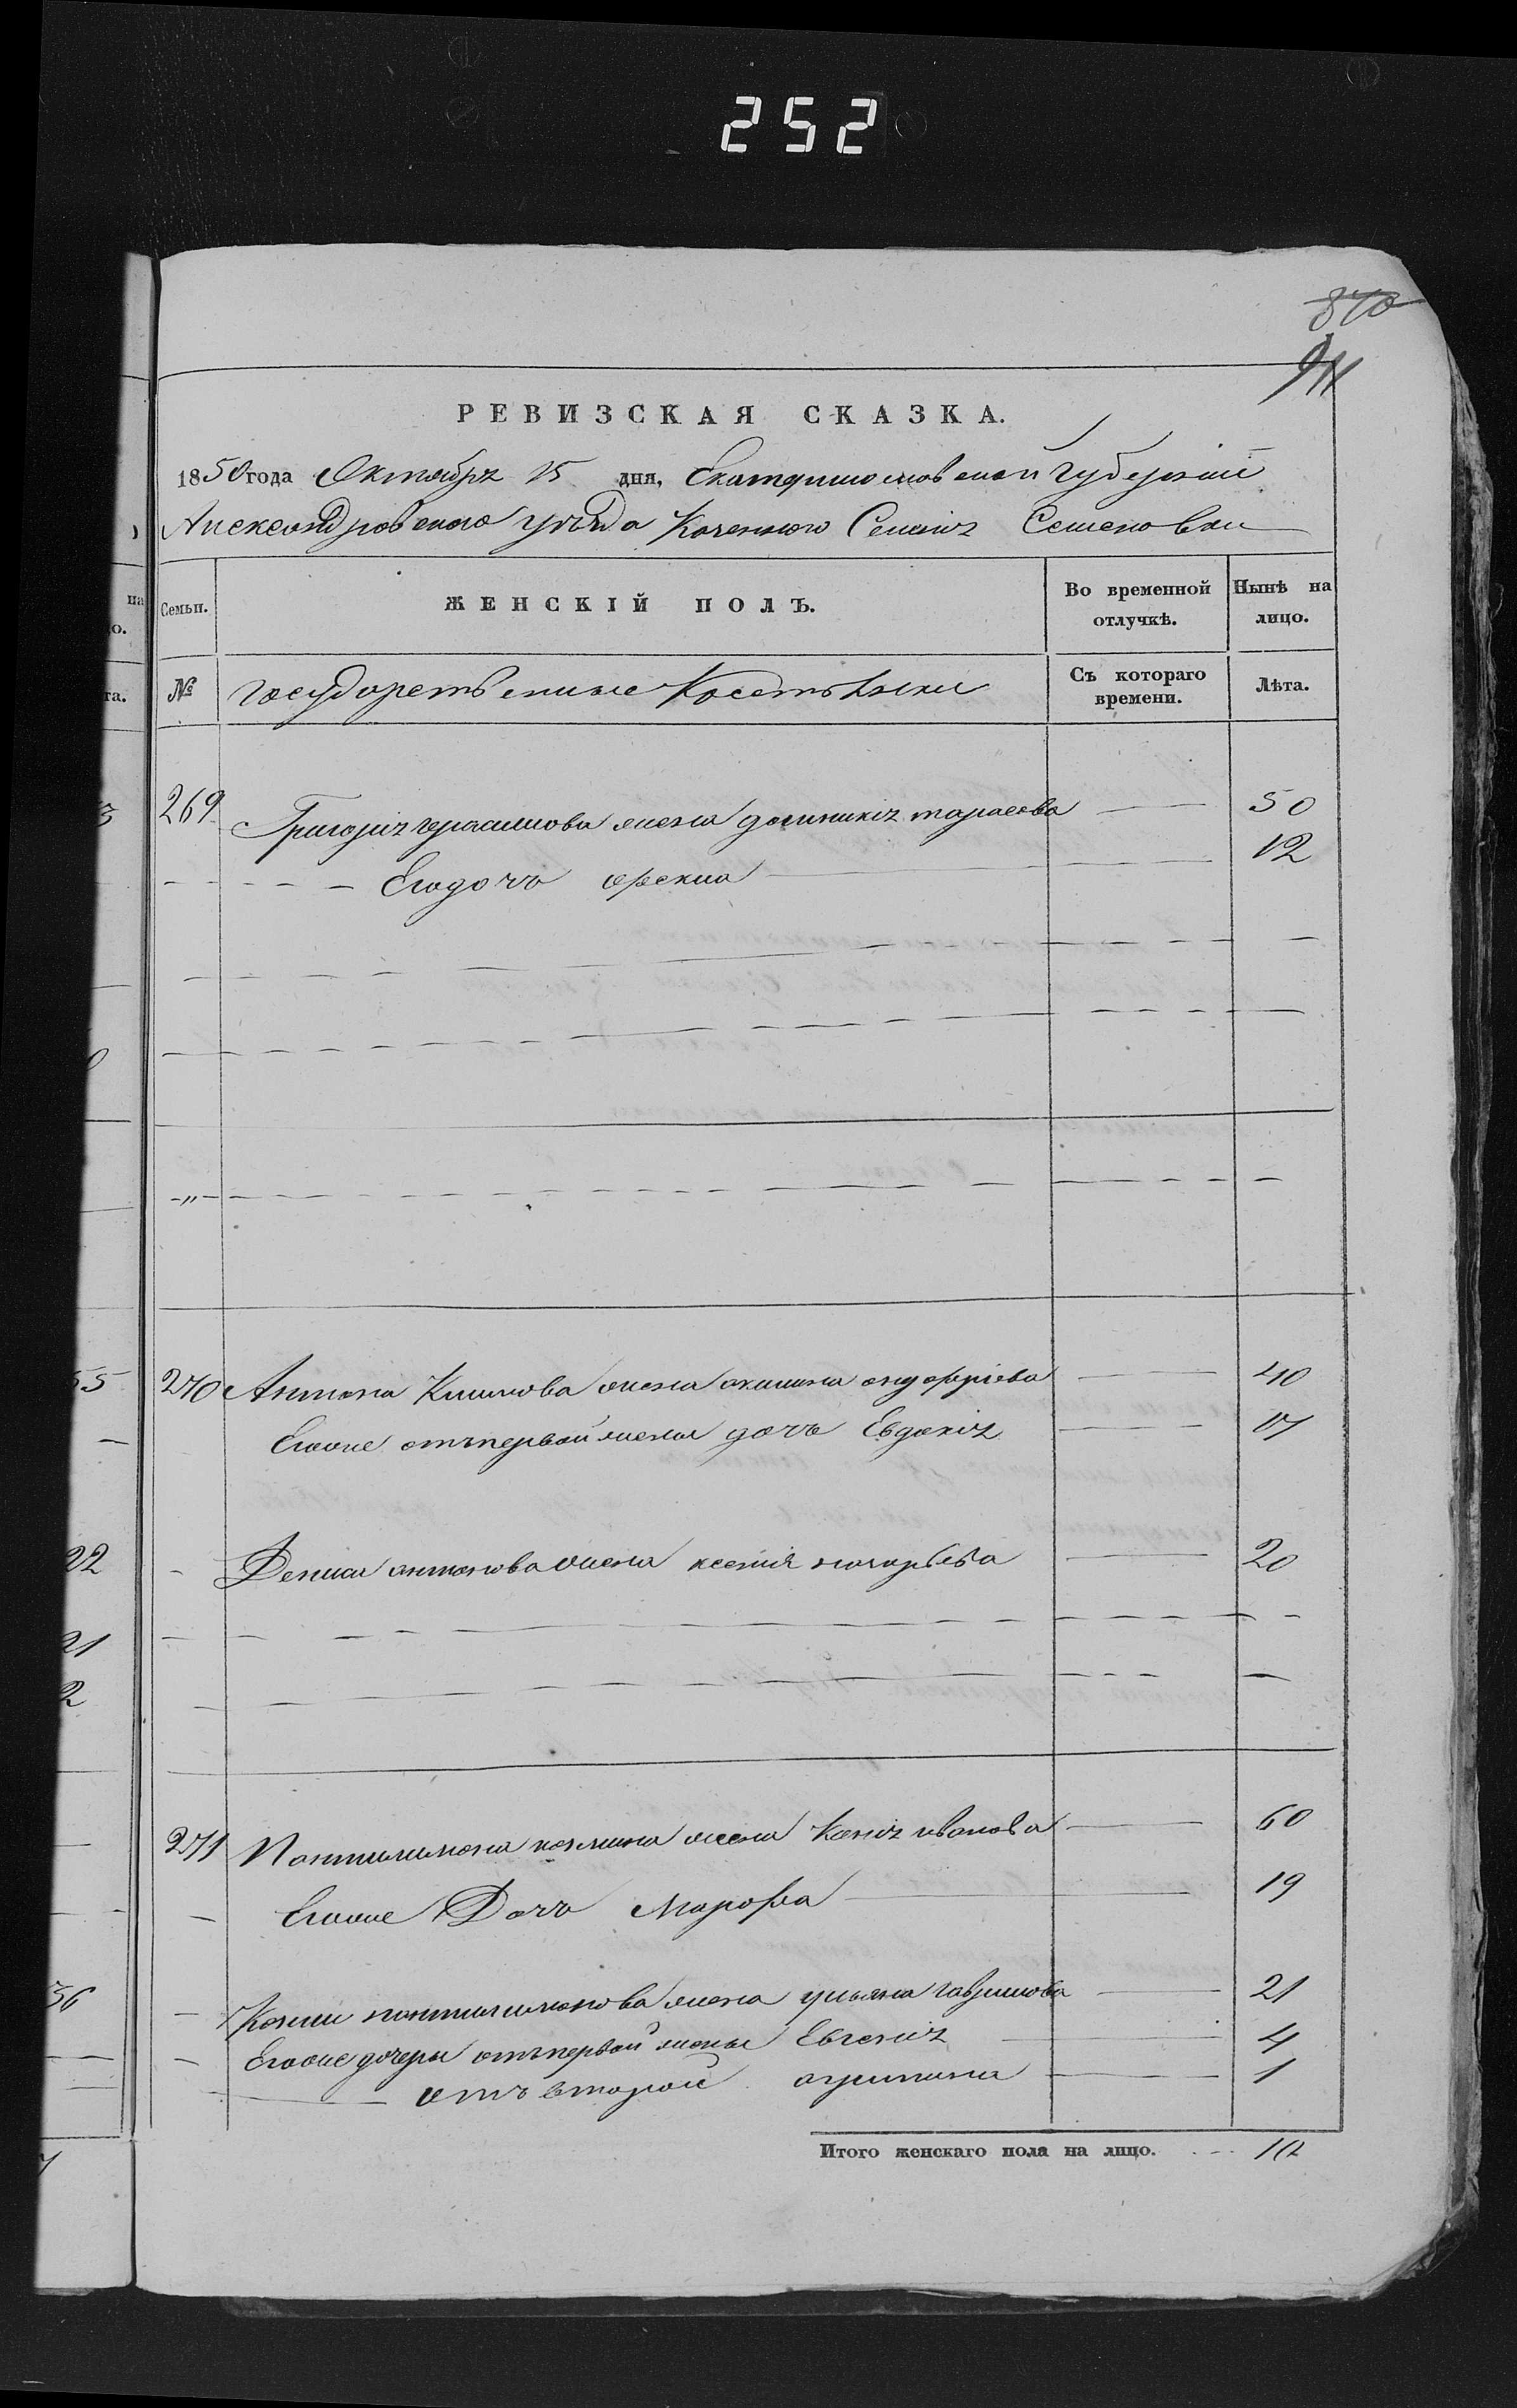 252
870
911
РЕВИЗСКАЯ СКАЗКА.
1850 года Октября 15 дня, Екатеринославской Губернии
Александровского уезда Казенного Селения Семеновки
на
о.
Семьи.
ЖЕНСКІЙ ПОЛЪ.
Во временной отлучкѣ.
Нынѣ на лицо.
та.
№
государственные Крестьянки
Съ котораго времени.
Лѣта.
3 269 Григория герасимова жена домникия тарасова — 50
Его дочь 12
0
55 270 Антона Климова жена акилина андреева — 40
Егоже отъ первой жены дочь Евдокия — 17
22 Дениса антонова жена ксения — 20
21
2
271 Пантилимона козмина жена Ксения иванова — 60
Егоже Дочь Марфа — 19
36 Козми пантилимонова жена ульяна — 21
Егоже дочери отъ первой жены Евгения — 4
отъ второй агрипина — 1
Итого женскаго пола на лицо. 10